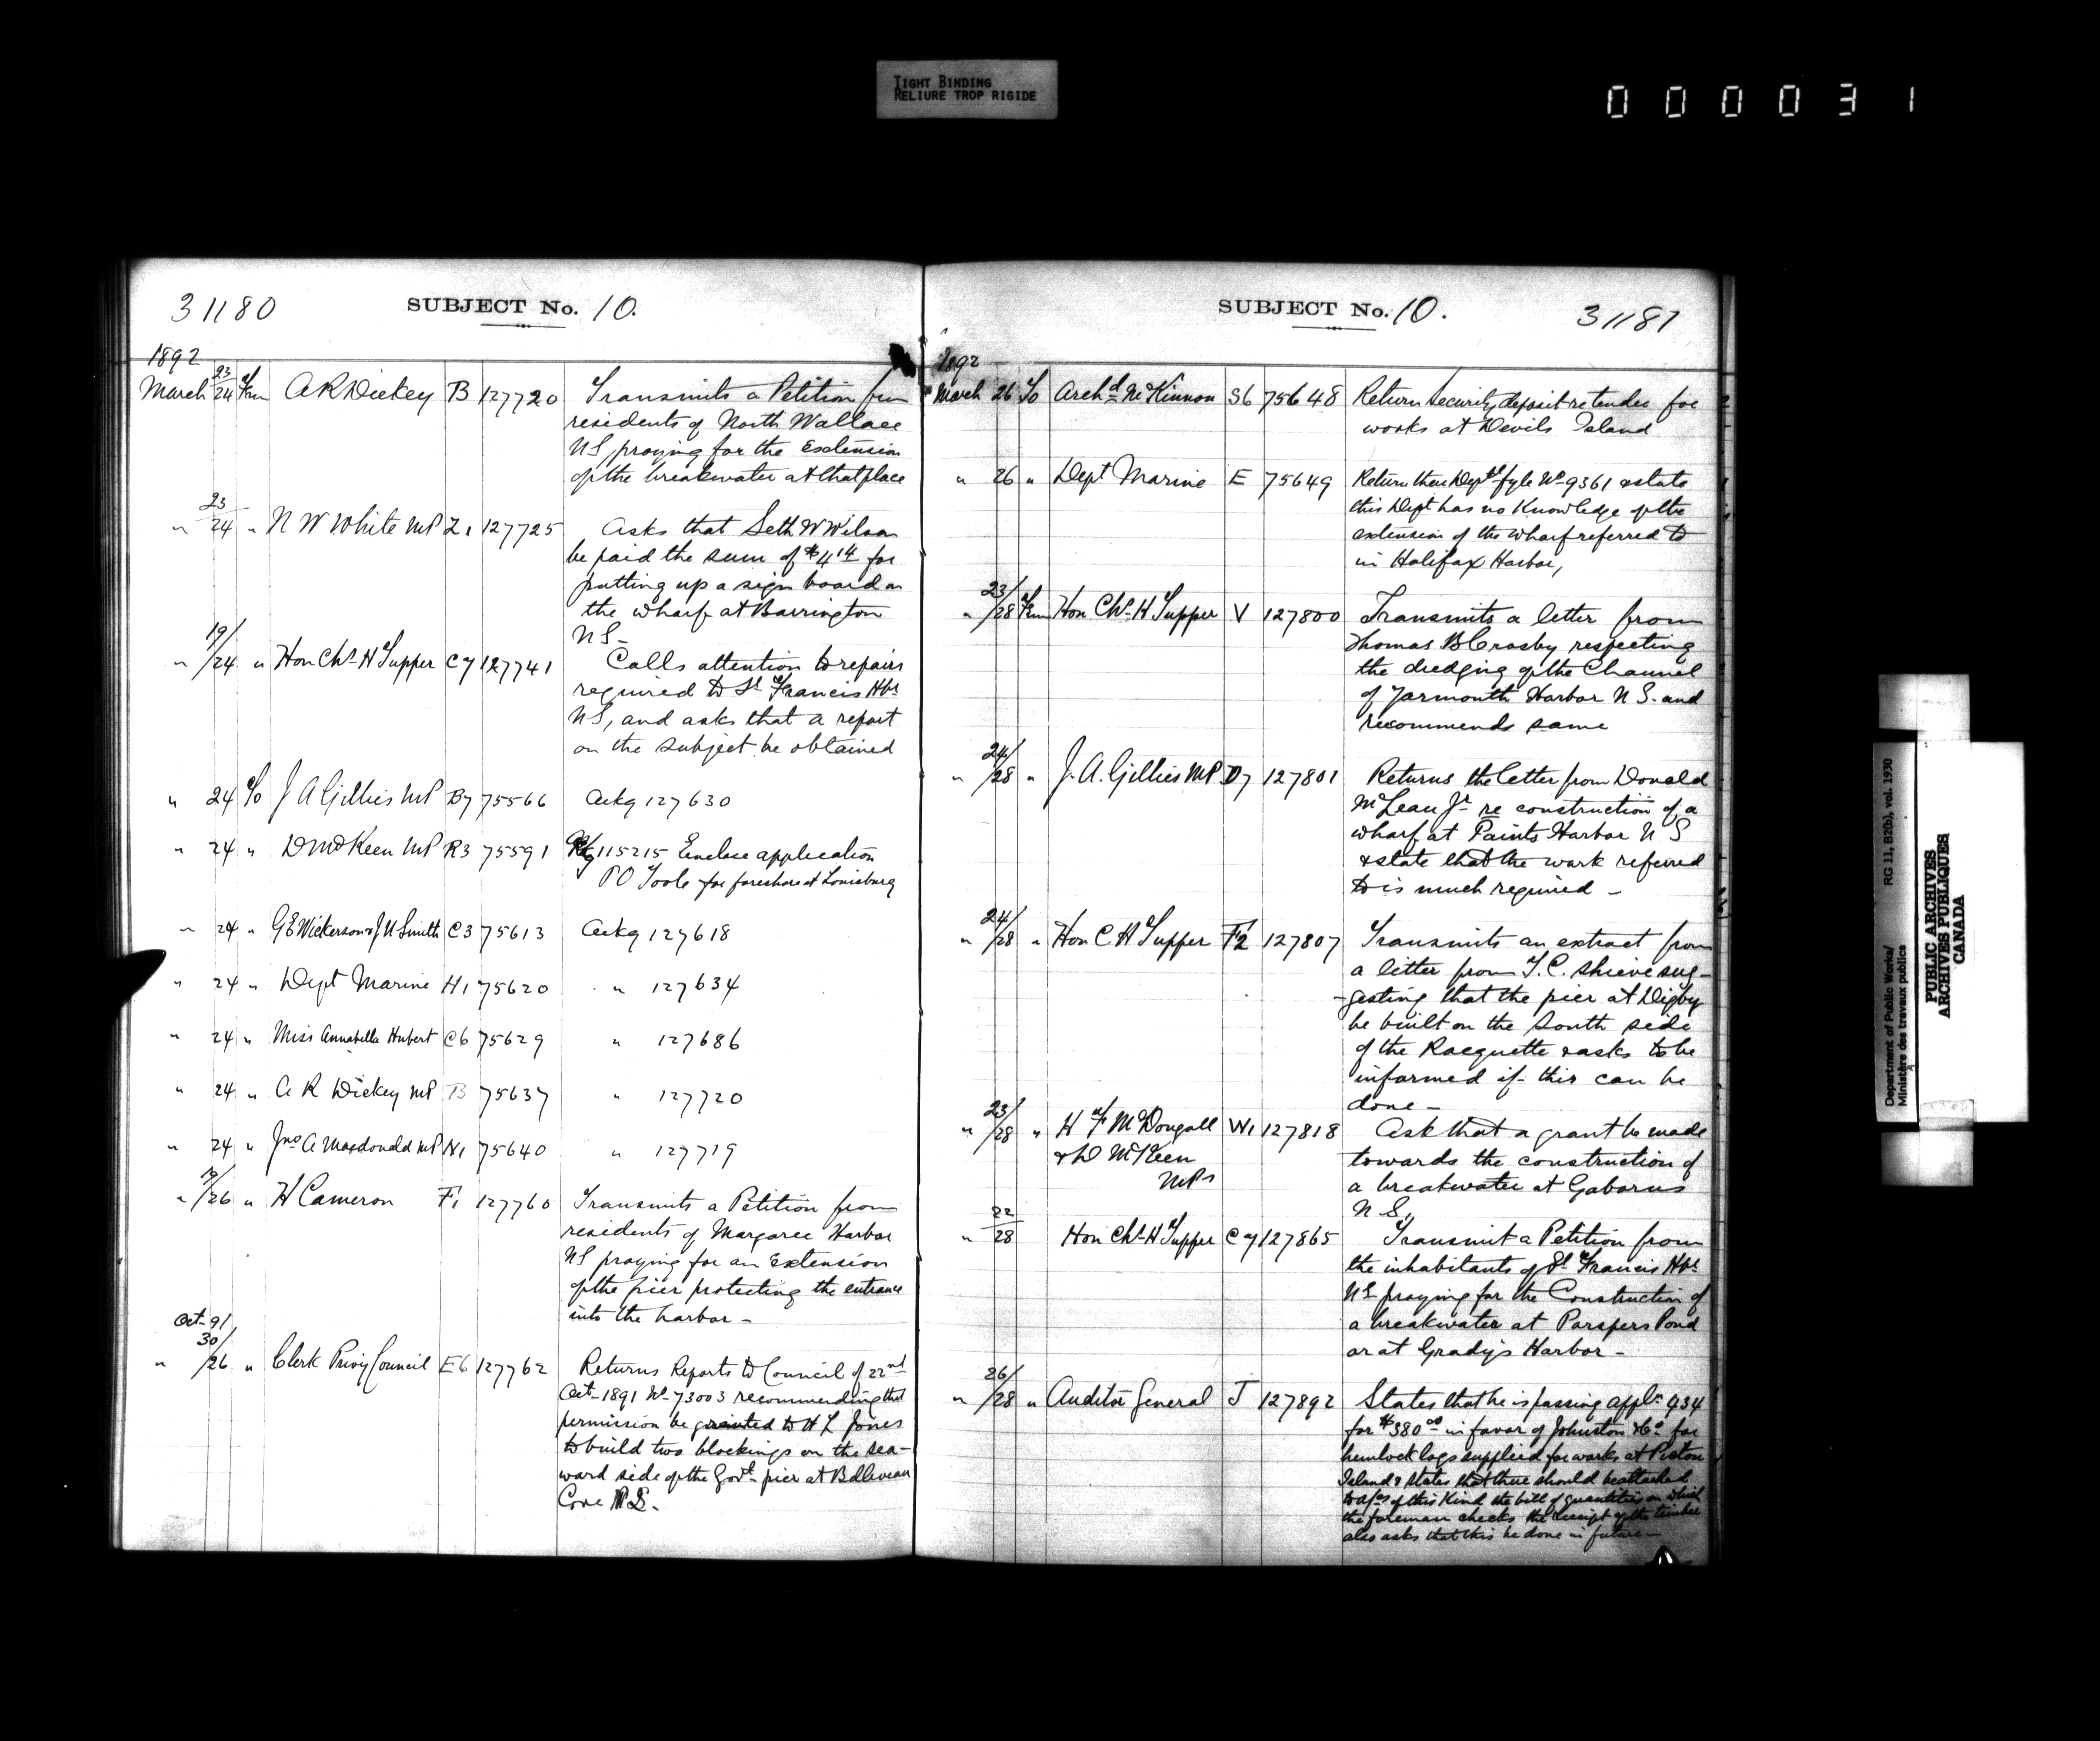 TIGHT BINDING
RELIURE TROP RIGIDE
0 0 0 0 3 1
31180
SUBJECT No. 10.
1892
March 23/24 From A R Dickey B 127720 Transmits a Petition from
residents of North Wallace
NS praying for the extension
of the breakwater at that place
" 23/24 " N W White MP Z1 127725 Asks that Seth W Wilson
be paid the sum of $4 14 for
putting up a sign board on
the wharf at Barrington
NS-
" 19/24 " Hon Chs H Tupper C7 127741 Calls attention to repairs
required to St Francis Hbr
NS, and asks that a report
on the subject be obtained
" 24 To J A Gillies MP B7 75566 Ackg 127630
" 24 " D McKeen MP R3 75591 115215 Enclose application
P O Toole for foreshore at Louisburg
" 24 " G E Wickerson & J N Smith C3 75613 Ackg 127618
" 24 " Dept Marine H1 75620 " 127634
" 24 " Miss Annabella Hubert C6 75629 " 127686
" 24 " A R Dickey MP B 75637 " 127720
" 24 " Jno A Macdonald MP N1 75640 " 127719
" 19/26 " H Cameron F1 127760 Transmits a Petition from
residents of Margaree Harbor
NS praying for an Extension
of the pier protecting the entrance
into the harbor -
Oct- 91
" 30/26 " Clerk Privy Council E6 127762 Returns Reports to Council of 22nd
Oct- 1891 No 73003 recommending that
permission be granted to H L Jones
to build two blockings on the sea-
ward side of the Govt pier at
Cove N.S.
SUBJECT No. 10.
31181
1892
March 26 To Archd McKinnon S6 75648 Return security deposit re tender for
works at Devils Island
" 26 " Dept Marine E 75649 Return their Deptl fyle No 9361 & state
this Dept has no Knowledge of the
extension of the wharf referred to
in Halifax Harbor,
" 23/28 From Hon Chs H Tupper V 127800 Transmits a letter from
Thomas B Crosby respecting
the dredging of the Channel
of Yarmouth Harbor N S. and
recommends same
" 24/28 " J. A. Gillies MP D7 127801 Returns the letter from Donald
McLean Jr re construction of a
wharf at Paints Harbor N S
& state that the work referred
to is much required -
" 24/28 " Hon C H Tupper F2 127807 Transmits an extract from
a letter from T. C. Shieve sug-
-gesting that the pier at Digby
be built on the South side
of the Racquette & asks to be
informed if this can be
done -
" 23/28 " H F McDougall W1 127818 Ask that a grant be made
& D McKeen towards the construction of
MPs a breakwater at Gabarus
N S,
" 22/28 Hon Chs H Tupper C7 127865 Transmit a Petition from
the inhabitants of St Francis Hbr
NS praying for the Construction of
a breakwater at Pond
or at Gradys Harbor -
" 26/28 " Auditor General J 127892 States that he is passing appln 934
for $380 00 in favor of Johnston & Co for
hemlock logs supplied for works at Picton
Island & states that there should be attached
to a/cs of this Kind the bill of quantities on which
the foreman checks the receipt of the timber
also asks that this be done in future -
Department of Public Works/ RG 11, B2(b), vol. 1930
Ministère des travaux publics
PUBLIC ARCHIVES
ARCHIVES PUBLIQUES
CANADA